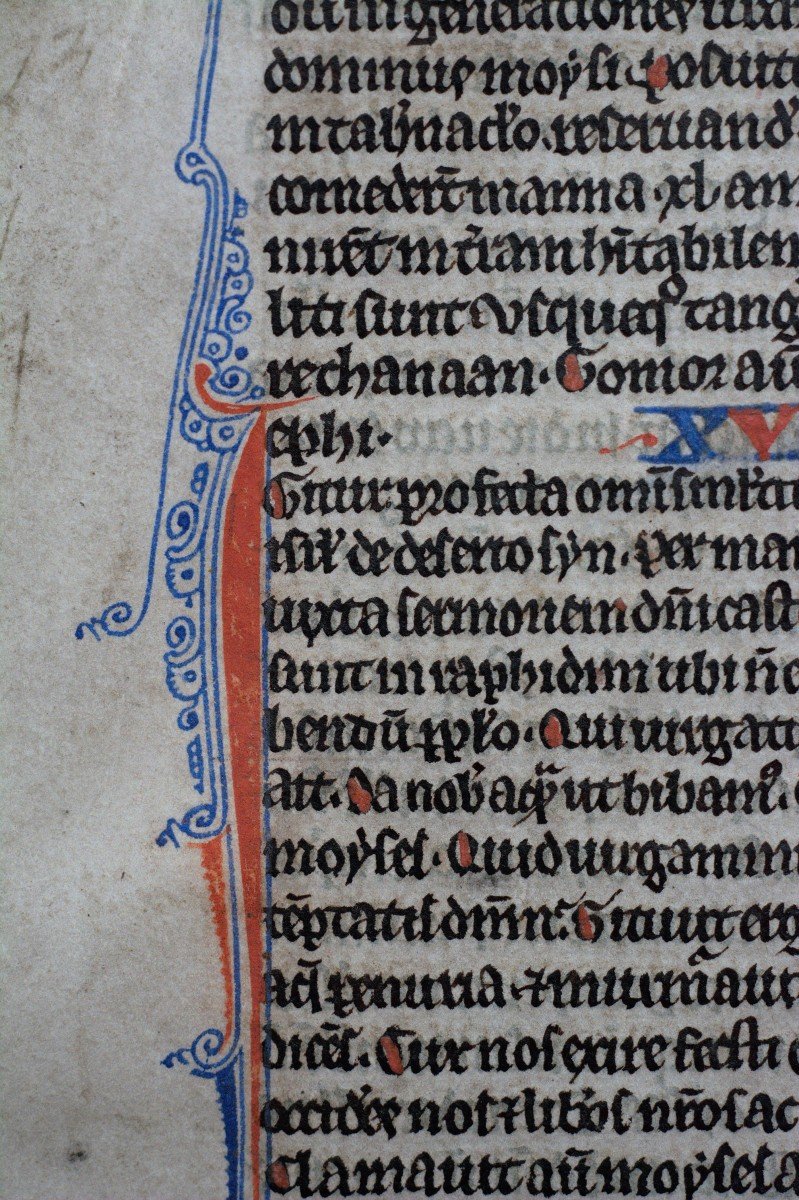 in generationes
dominus moysi Posuitq
in tab'nac'lo. reseruand'
comeder̄t manna xl an
uēt in t'ram h'itabilem
liti sunt Usq̨ueq̊ tang
re chanaan. Gomor aū
ephi. XV
Gitur profecta om̄is mltitu
isr̄l de deserto syn. Per man
iuxta sermonem dn̄i cast
sunt in raphidim ubi n̄ e
bendū pplo. Qui iurgatu
ait. Da nob' aqͣm ut bibamꝰ.
moyses. Quid iurgamini
tēptatis dn̄m. Sitiuit erg
aq̄ penuria. ⁊ murm̄auit
dicēs. Cur nos exire fecisti
occid'es nos ⁊ lib'os nr̄os ac
Clamauit aū moyses a